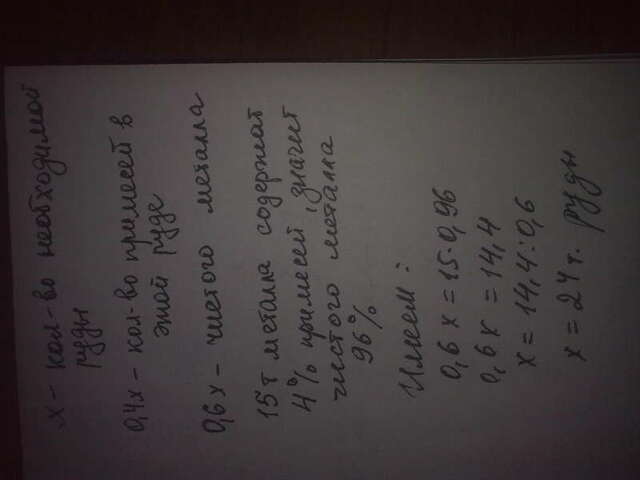 x - кол-во необходимой
руды
0,4x - кол-во примесей в
этой руде
0,6x - чистого металла
15т металла содержат
4% примесей, значит
чистого металла
96%
Имеем:
0,6x = 15·0,96
0,6x = 14,4
x = 14,4:0,6
x = 24т. руды